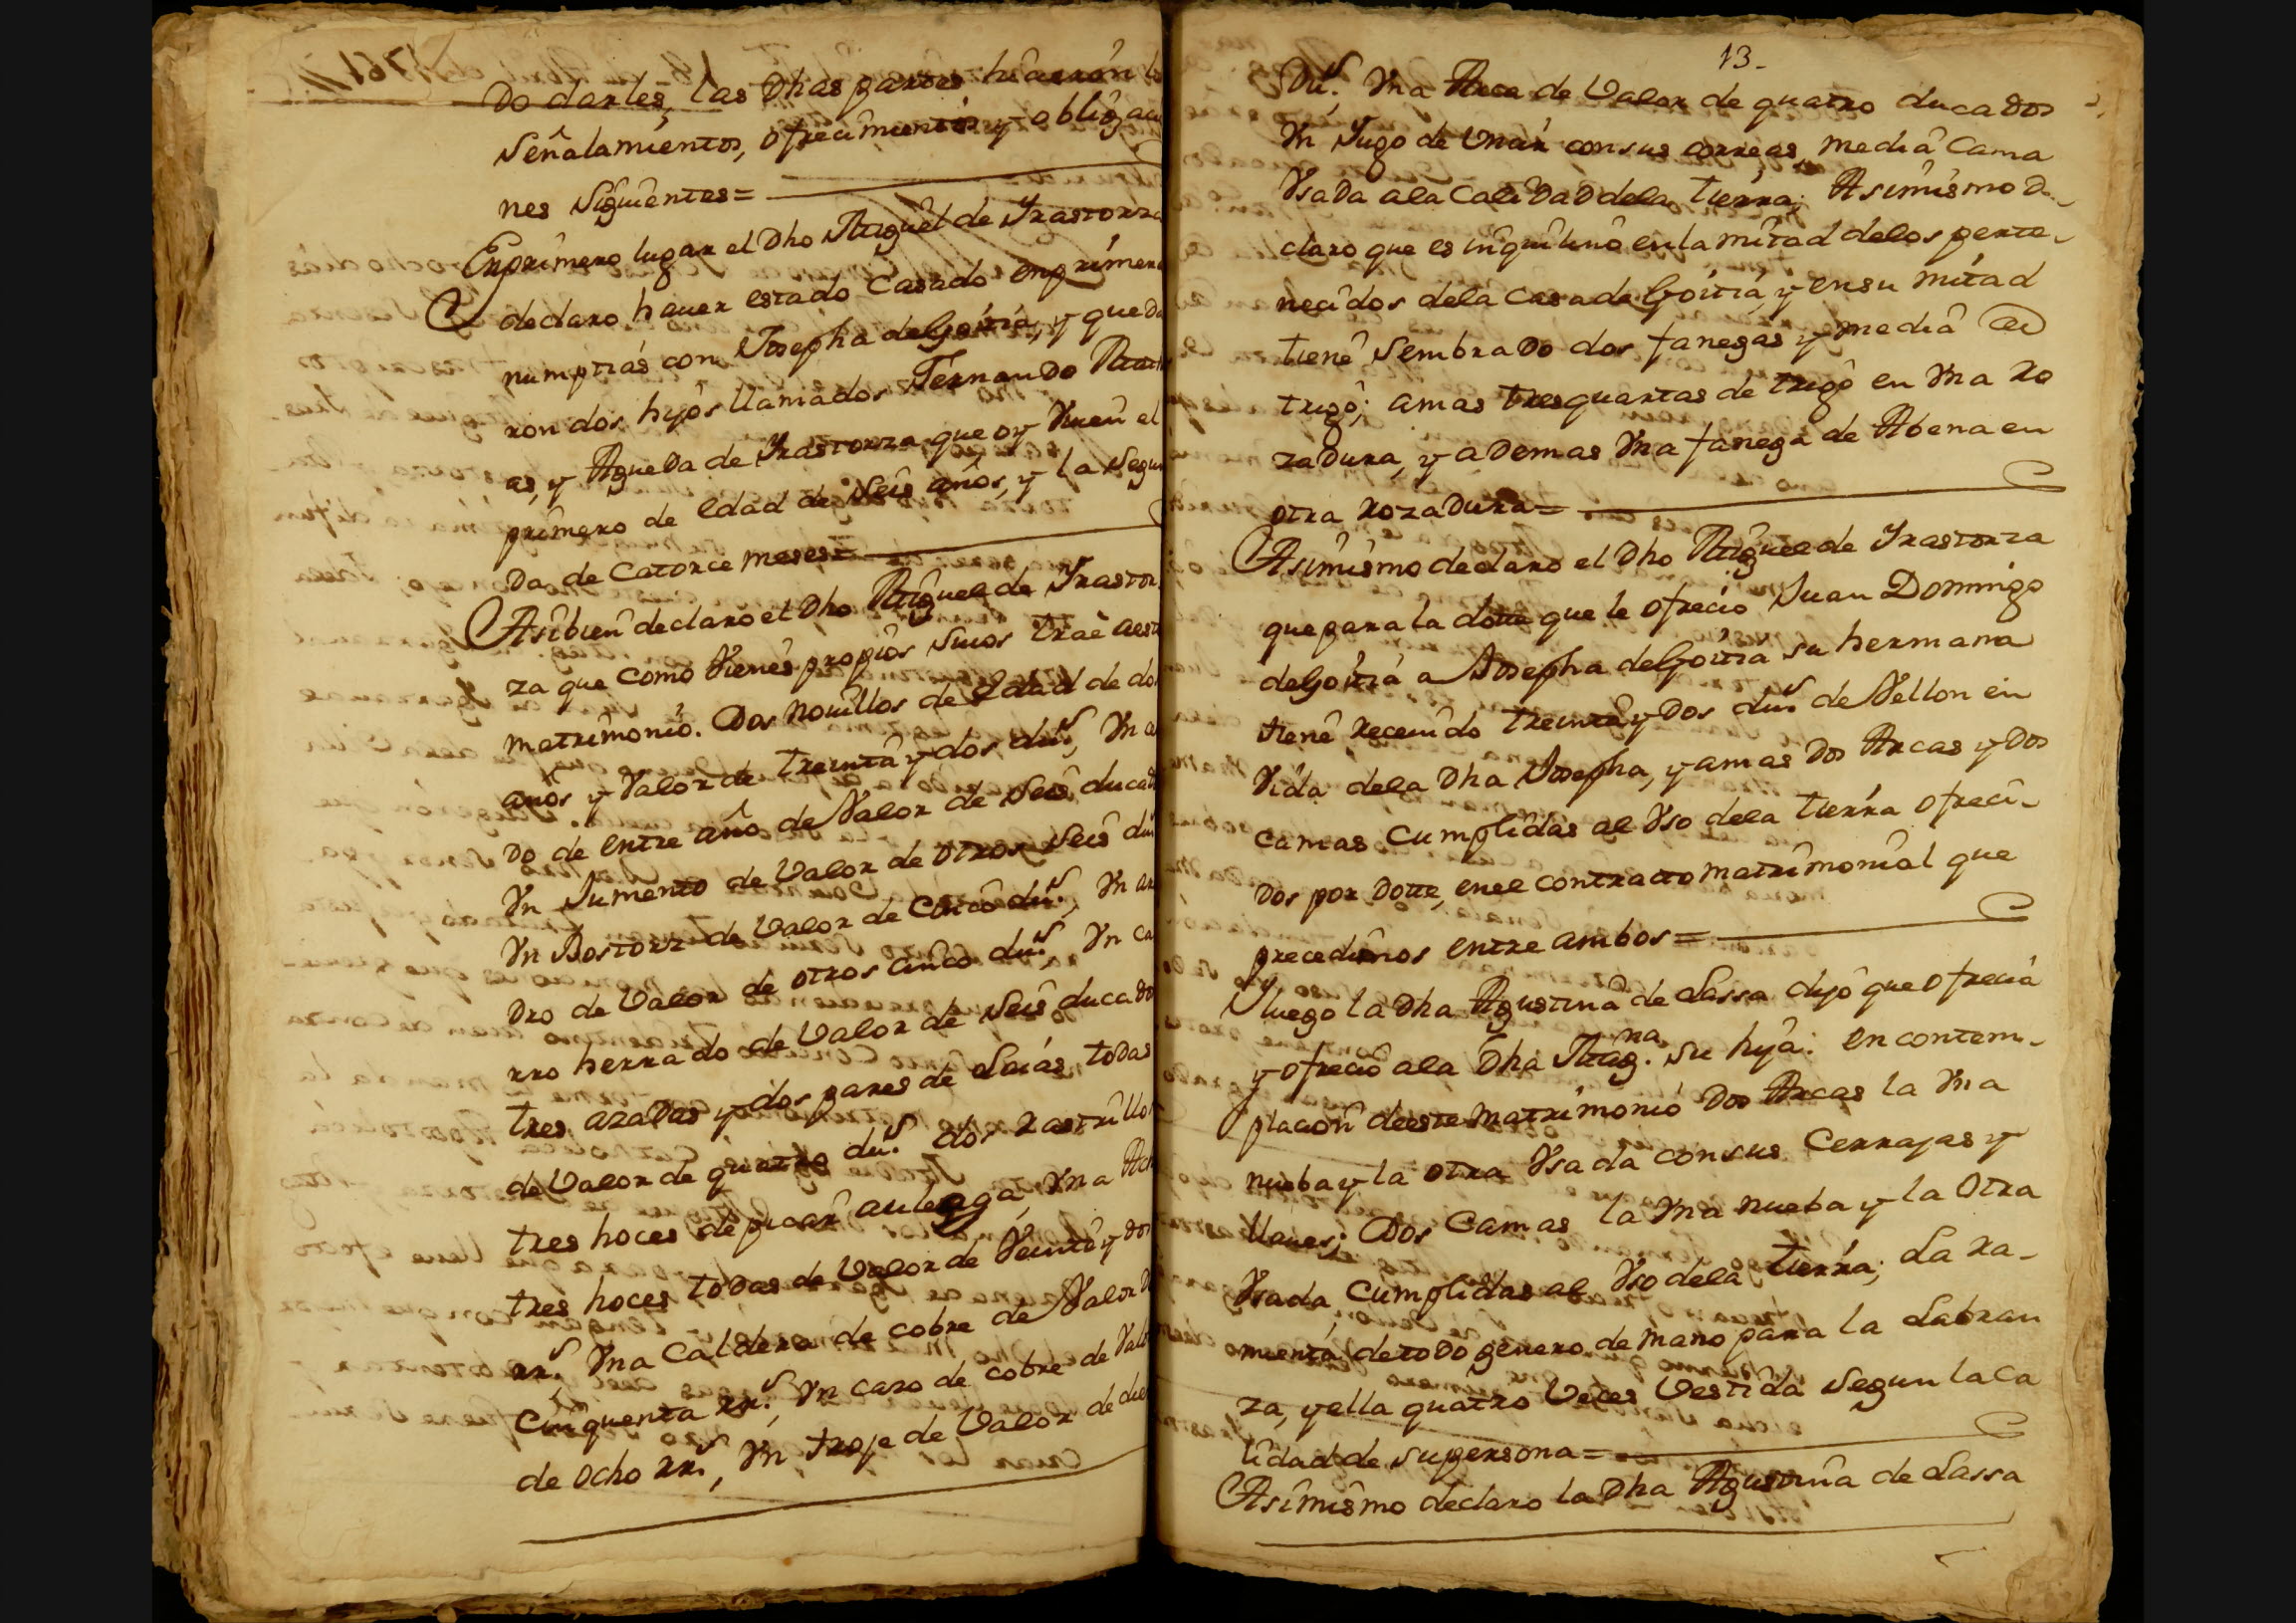 do darles, las Dhas partes hiciéron
Señalamientos, ofrecimientos y obligacio
nes Siguientes=
En primero lugar el Dho Miguel de Yrastorza
declaro haver estado Casado en primera
numptias con Josepha de Goitia, y queda
ron dos hijos llamados Fernando
as, y Agueda de Yrastorza que oy viven el
primero de edad de Seis años, y la Segun
da, de Catorce meses=
Asibien declaro el Dho Miguel de Yrastor
za que como vienes propios suios trae aeste
matrimonio. Dos novillos de Edad de dos
años y Valor de treinta y dos du.s, Vn a
do de entre año de Valor de Seis ducad
Vn Jumento de Valor de otros Seis du
Vn Bostorz de Valor de Cinco du.s, Vn ara
dro de Valor de otros cinco du.s, Vn ca
rro herrado de Valor de Seis ducado
tres azadas y dos pares de Laias, todas
de Valor de quatro du.s dos rastrillos
tres hoces de picar aulaga, Vna Ach
tres hoces todas de Valor de Veinte y dos
rr.s Vna Caldera de cobre de Valor d
Cinquenta rr.s, Vn cazo de cobre de Valor
de ocho rr.s, Vn troje de Valor de diez
13-
Du.s Vna Arca de Valor de quatro ducados
Vn Jugo de Vnir con sus correas, media Cama
Vsada ala Calidad dela tierra; Asimismo de-
claro que es inquilino en la mitad delos perte-
necidos dela Casa de Goitia, y en su mitad
tiene Sembrado dos fanegas y media de
trigo; amas tres quartas de trigo en Vna Ro
zadura, y ademas Vna fanega de Abena en
otra Rozadura=
Asimismo declaro el Dho Miguel de Yrastorza
que para la dotte que le ofrecio Juan Domingo
de Goitia a Josepha de Goitia su hermana
tiene recevido treinta y dos du.s de Vellon en
Vida dela Dha Josepha, y amas dos Arcas y dos
camas cumplidas al Vso dela tierra ofreci-
dos por dotte, en el contracto matrimonial que
precedimos entre ambos=
Y luego la Dha Agustina de Lassa dijo que ofrecia
y ofrecio ala Dha Mag.na su hija: en contem-
placion de este Matrimonio dos Arcas la Vna
nueba y la otra Vsada con sus Cerrajas y
llaves; Dos Camas la Vna nueba y la otra
Vsada, Cumplidas al Vso dela tierra; La Ra-
mienta de todo genero de mano para la Labran
za, y ella quatro Veces Vestida Segun la Ca
lidad de su persona=
Asimismo declaro la Dha Agustina de Lassa